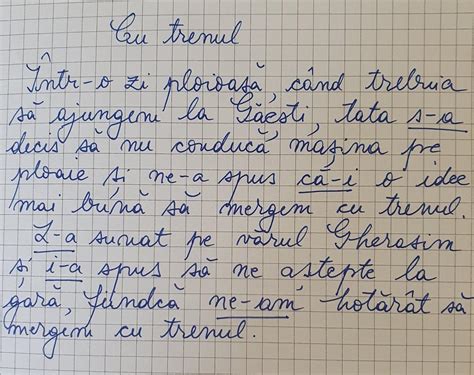 Cu trenul
Într-o zi ploioasă, când trebuia
să ajungem la Găești, tata s-a
decis să nu conducă mașina pe
ploaie și ne-a spus că-i o idee
mai bună să mergem cu trenul.
L-a sunat pe vărul Gherasim
și i-a spus să ne aștepte la
gară, fiindcă ne-am hotărât să
mergem cu trenul.